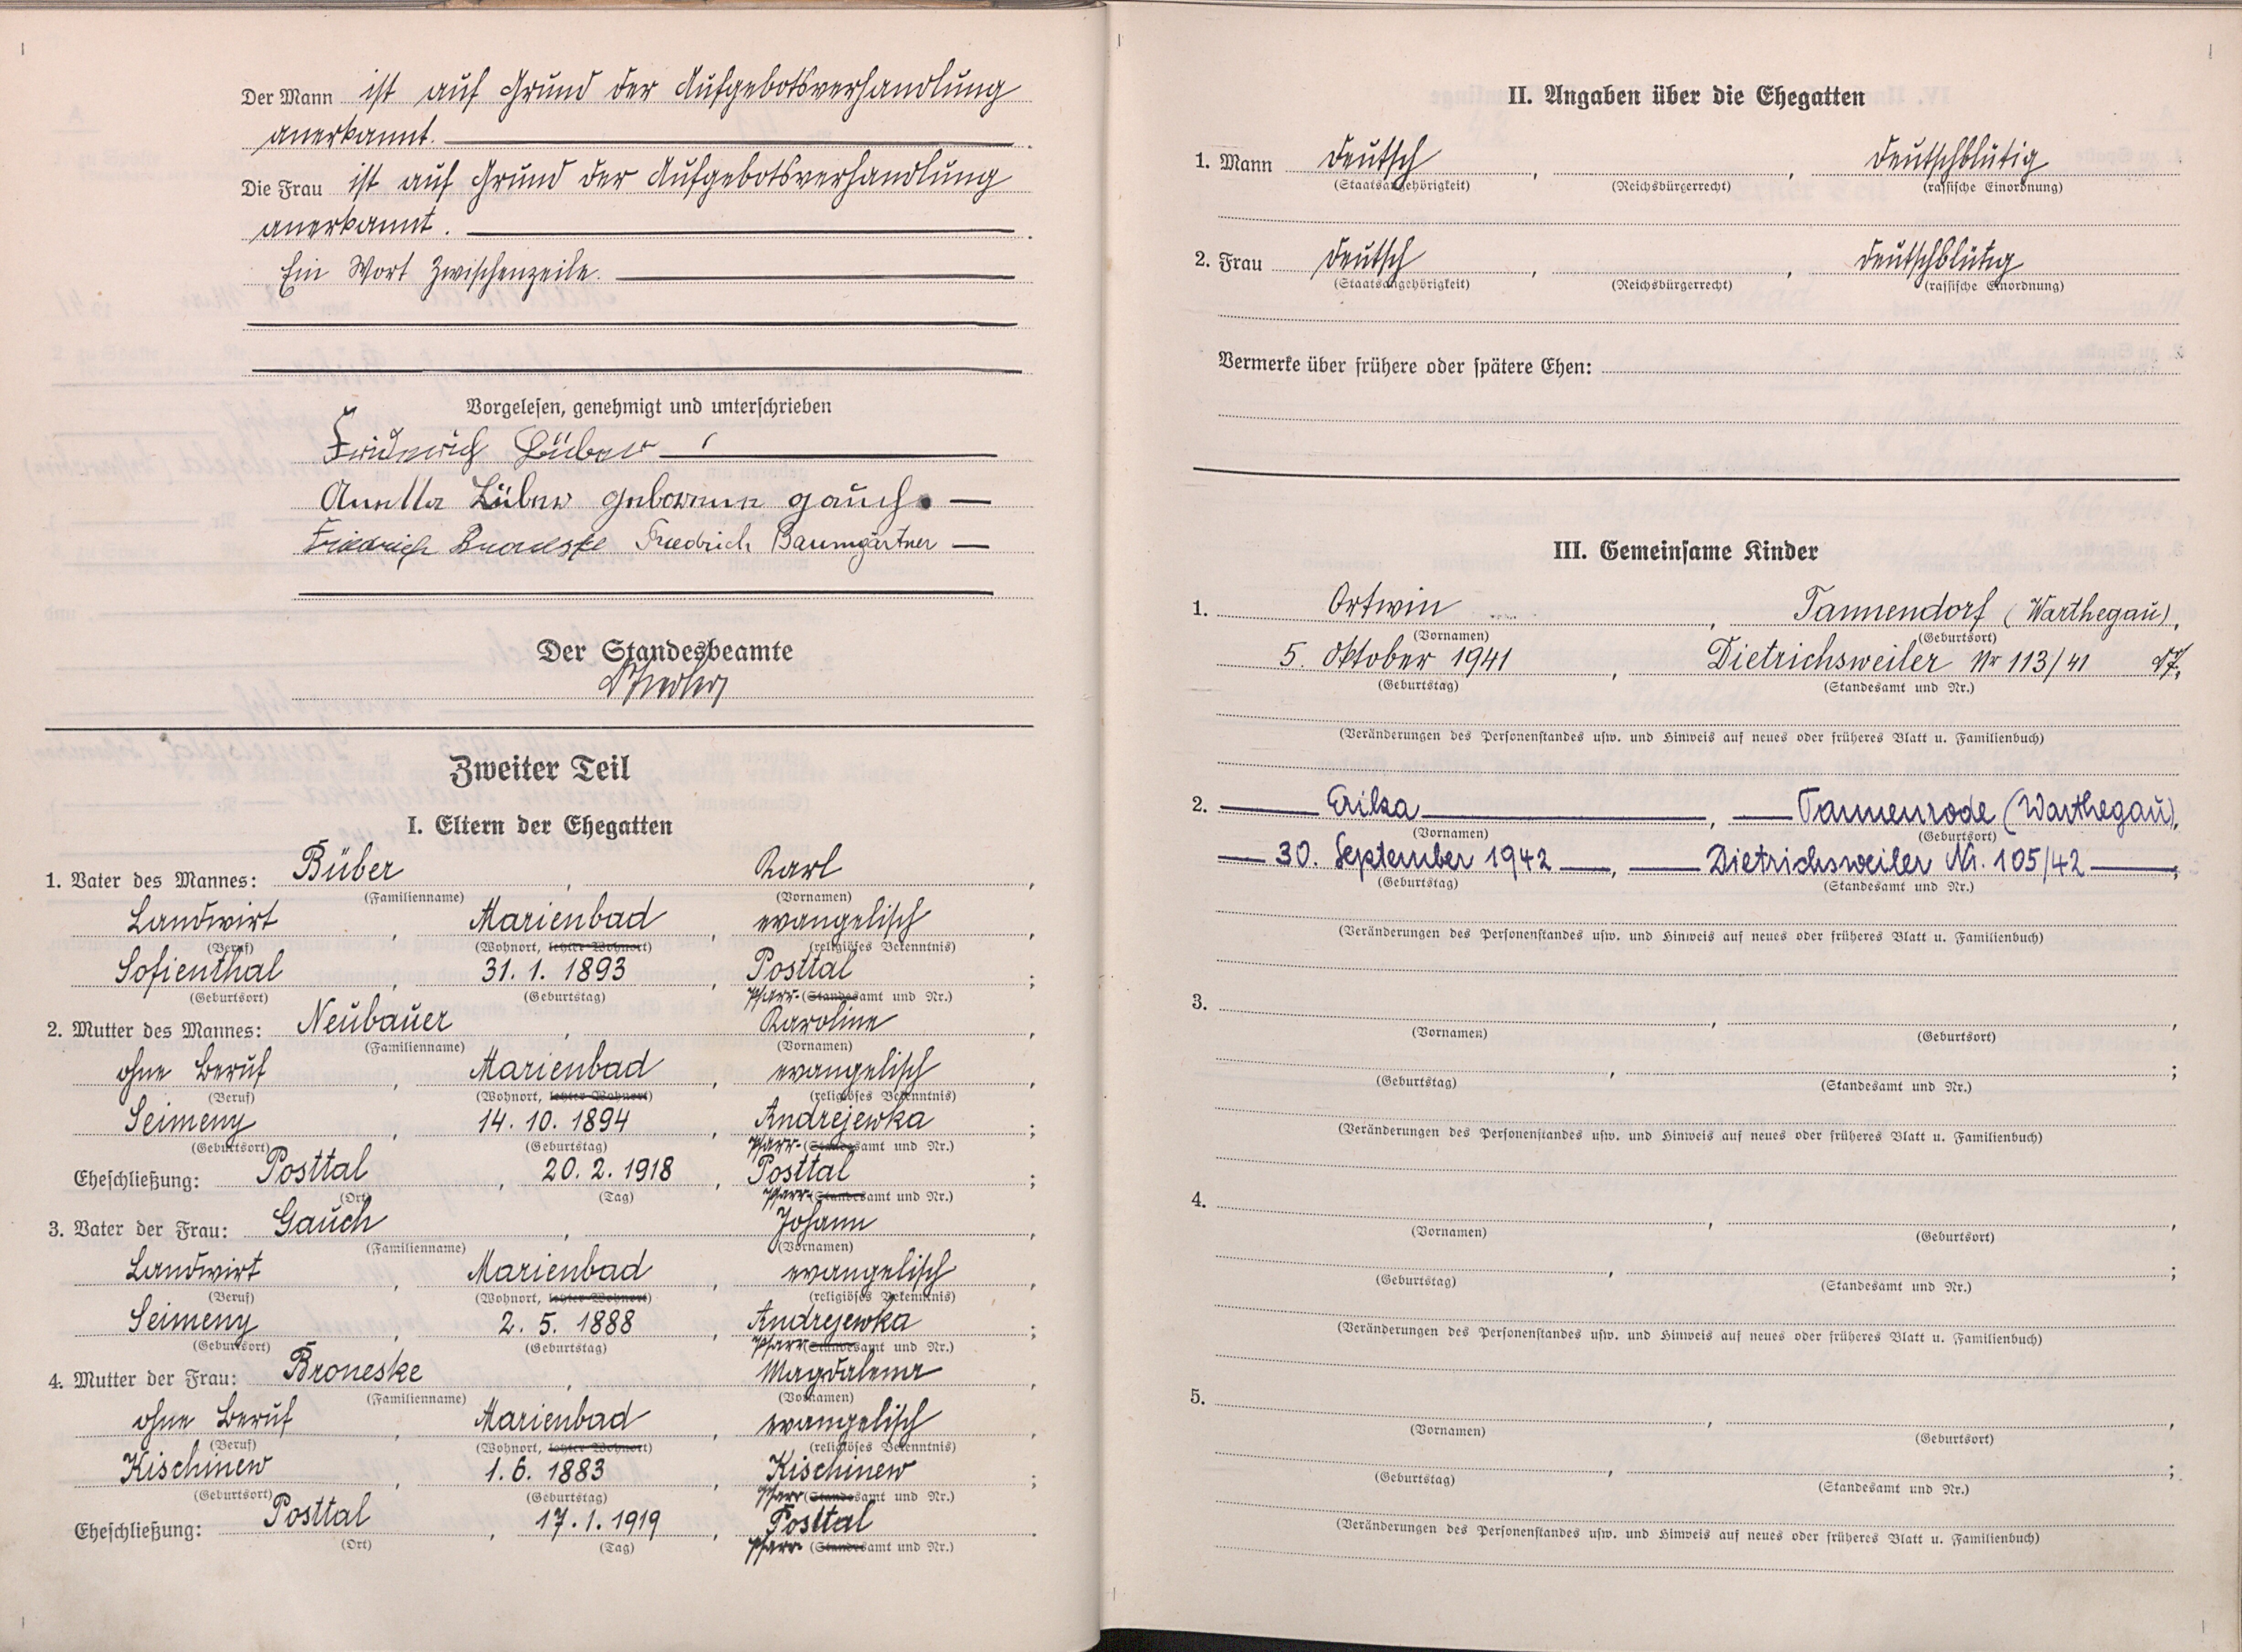 Der Mann ist auf Grund der Aufgebotsverhandlung
anerkannt.
Die Frau ist auf Grund der Aufgebotsverhandlung
anerkannt.
Ein Wort Zwischenzeile.
Vorgelesen, genehmigt und unterschrieben
Friedrich Büber
Amalia Büber geborene Gauch
Friedrich Broneske Friedrich Baumgärtner
Der Standesbeamte
Zweiter Teil
I. Eltern der Ehegatten
1. Vater des Mannes: Büber, Karl,
(Familienname) (Vornamen)
Landwirt, Marienbad, evangelisch,
(Beruf) (Wohnort, letzter Wohnort) (religiöses Bekenntnis)
Sofienthal, 31. 1. 1893, Posttal;
(Geburtsort) (Geburtstag) Pfarr- (Standesamt und Nr.)
2. Mutter des Mannes: Neubauer, Karoline,
(Familienname) (Vornamen)
ohne Beruf, Marienbad, evangelisch,
(Beruf) (Wohnort, letzter Wohnort) (religiöses Bekenntnis)
Seimeny, 14. 10. 1894, Andrejewka;
(Geburtsort) (Geburtstag) Pfarr- (Standesamt und Nr.)
Eheschließung: Posttal, 20. 2. 1918, Posttal;
(Ort) (Tag) Pfarr- (Standesamt und Nr.)
3. Vater der Frau: Gauch, Johann,
(Familienname) (Vornamen)
Landwirt, Marienbad, evangelisch,
(Beruf) (Wohnort, letzter Wohnort) (religiöses Bekenntnis)
Seimeny, 2. 5. 1888, Andrejewka;
(Geburtsort) (Geburtstag) Pfarr (Standesamt und Nr.)
4. Mutter der Frau: Broneske, Magdalena,
(Familienname) (Vornamen)
ohne Beruf, Marienbad, evangelisch,
(Beruf) (Wohnort, letzter Wohnort) (religiöses Bekenntnis)
Kischinew, 1. 6. 1883, Kischinew;
(Geburtsort) (Geburtstag) Pfarr (Standesamt und Nr.)
Eheschließung: Posttal, 17. 1. 1919, Posttal.
(Ort) (Tag) Pfarr- (Standesamt und Nr.)
II. Angaben über die Ehegatten
1. Mann deutsch, , deutschblütig
(Staatsangehörigkeit) (Reichsbürgerrecht) (rassische Einordnung)
2. Frau deutsch, , deutschblütig
(Staatsangehörigkeit) (Reichsbürgerrecht) (rassische Einordnung)
Vermerke über frühere oder spätere Ehen:
III. Gemeinsame Kinder
1. Ortwin, Tannendorf (Warthegau),
(Vornamen) (Geburtsort)
5. Oktober 1941, Dietrichsweiler Nr 113/41
(Geburtstag) (Standesamt und Nr.)
(Veränderungen des Personenstandes usw. und Hinweis auf neues oder früheres Blatt u. Familienbuch)
2. Erika, Tannenrode (Warthegau),
(Vornamen) (Geburtsort)
30. September 1942, Dietrichsweiler Nr. 105/42;
(Geburtstag) (Standesamt und Nr.)
(Veränderungen des Personenstandes usw. und Hinweis auf neues oder früheres Blatt u. Familienbuch)
3. , ,
(Vornamen) (Geburtsort)
, ;
(Geburtstag) (Standesamt und Nr.)
(Veränderungen des Personenstandes usw. und Hinweis auf neues oder früheres Blatt u. Familienbuch)
4. , ,
(Vornamen) (Geburtsort)
, ;
(Geburtstag) (Standesamt und Nr.)
(Veränderungen des Personenstandes usw. und Hinweis auf neues oder früheres Blatt u. Familienbuch)
5. , ,
(Vornamen) (Geburtsort)
, ;
(Geburtstag) (Standesamt und Nr.)
(Veränderungen des Personenstandes usw. und Hinweis auf neues oder früheres Blatt u. Familienbuch)